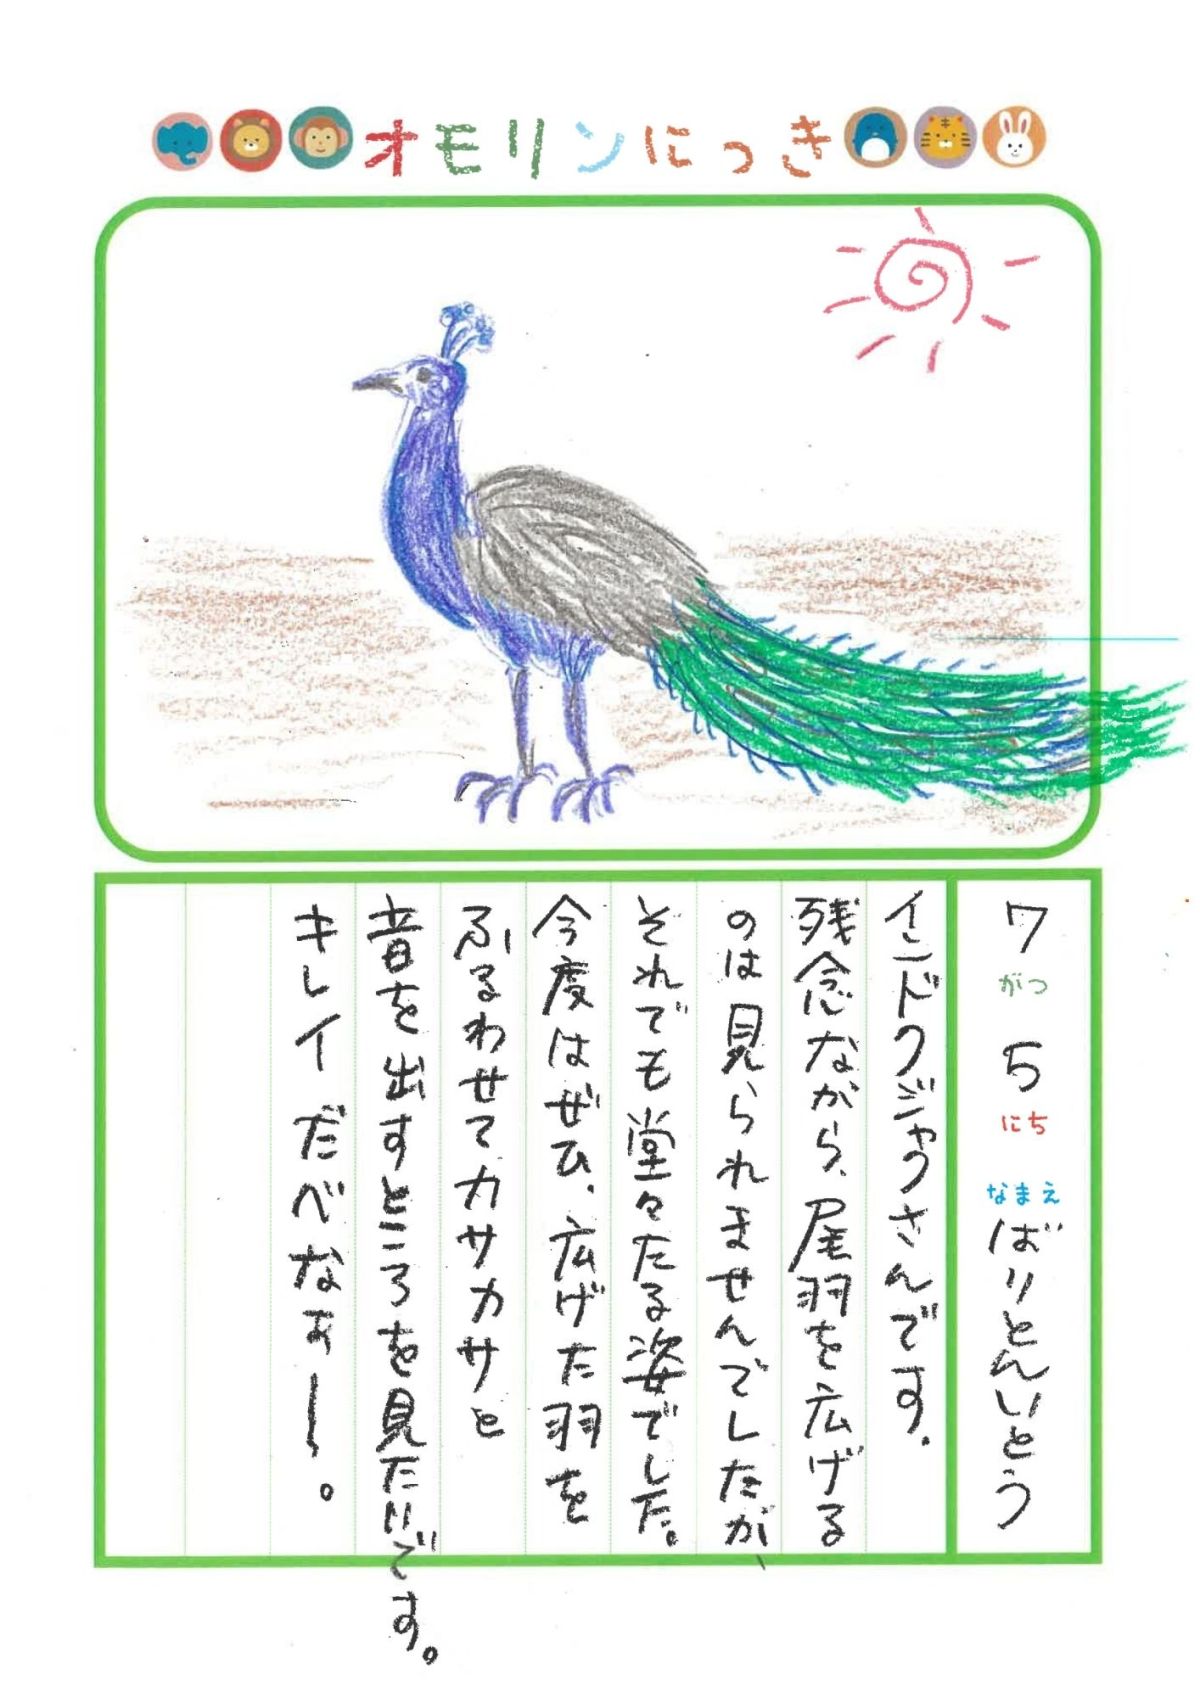 オモリンにっき
7がつ5にち なまえ ばりとんいとう
インドクジャクさんです。
残念ながら、尾羽を広げる
のは見られませんでしたが、
それでも堂々たる姿でした。
今度はぜひ、広げた羽を
ふるわせてカサカサと
音を出すところを見たいです。
キレイだべなぁー。